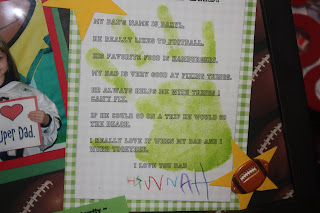 MY DAD'S NAME IS DARYL.
HE REALLY LIKES TO FOOTBALL.
HIS FAVORITE FOOD IS HAMBURGERS.
MY DAD IS VERY GOOD AT FIXING THINGS.
HE ALWAYS HELPS ME WITH THINGS I
CAN'T FIX.
IF HE COULD GO ON A TRIP HE WOULD GO
TO THE BEACH.
I REALLY LOVE IT WHEN MY DAD AND I
WORK TOGETHER.
I LOVE YOU DAD
HANNAH
I
uper Dad.